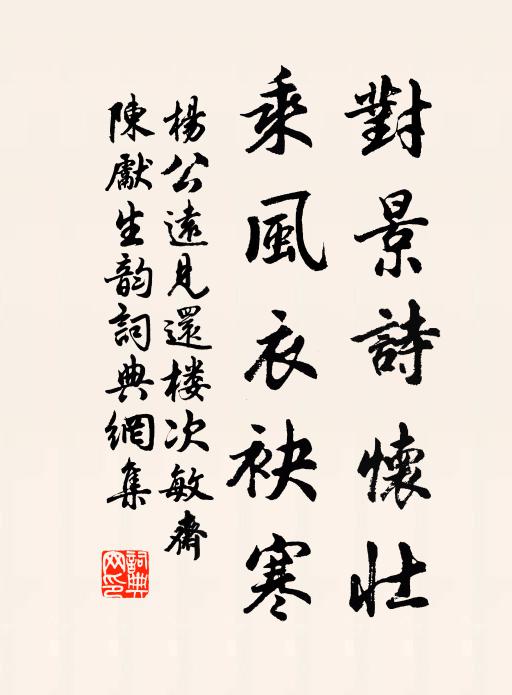 對景詩懷壯
乘風衣袂寒
楊公遠見還楼次敏齋
陳獻生韵詞典網集
詞典網印